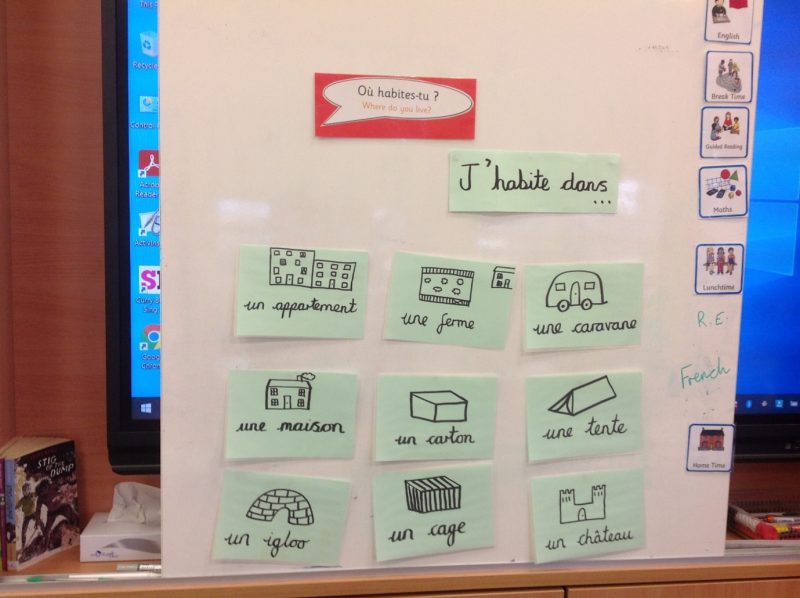 Où habites-tu ?
Where do you live?
J'habite dans
...
un appartement
une ferme
une caravane
une maison
un carton
une tente
un igloo
un cage
un château
English
Break Time
Guided Reading
Maths
Lunchtime
R.E.
French
Home Time
Recycle
Control
Acrob
Reader
Activins
Googl
Chrom
STIG OF THE DUMP